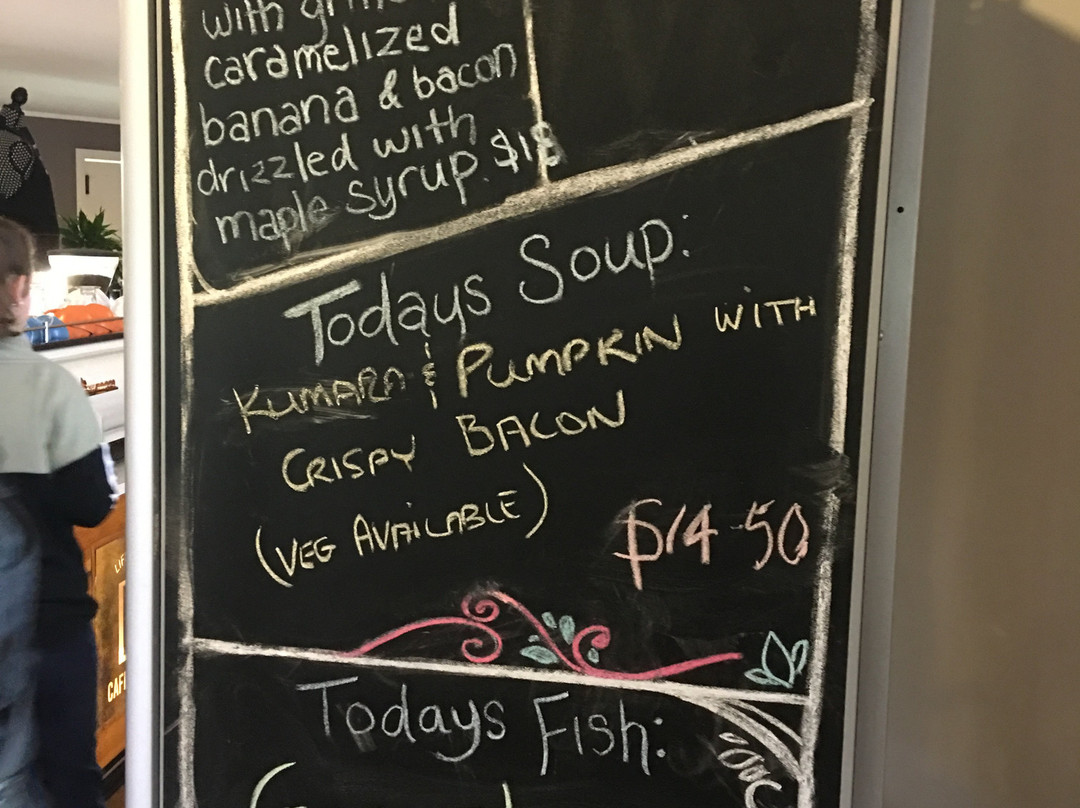 with
caramelized
banana & bacon
drizzled with
maple syrup. $18
Todays Soup:
KUMARA & PUMPKIN WITH
CRISPY BACON
(VEG AVAILABLE)
$14-50
Todays Fish: